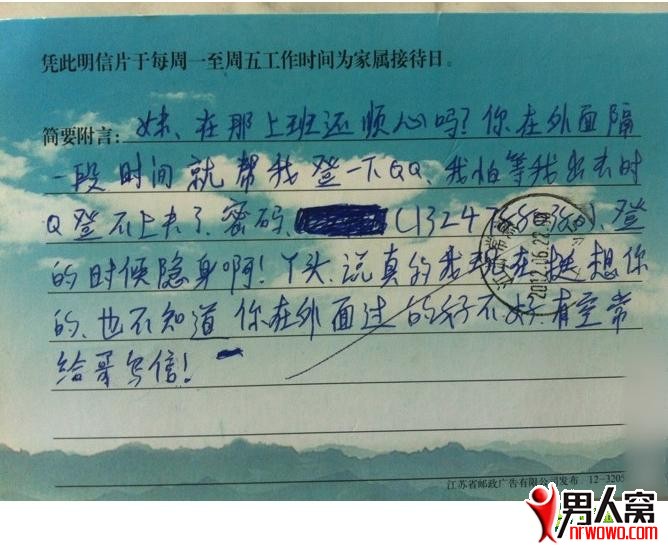 凭此明信片于每周一至周五工作时间为家属接待日。
简要附言：妹、在那上班还顺心吗？你在外面隔
一段时间就帮我登一下QQ、我怕等我出去时
Q登不上去了、密码、(1324 登
的时候隐身啊！丫头、说真的我现在挺想你
的、也不知道你在外面过的好不好、有空常
给哥写信！
2012.
江苏省邮政广告有限公司发布 12-3205
男人窝
nrwowo.com